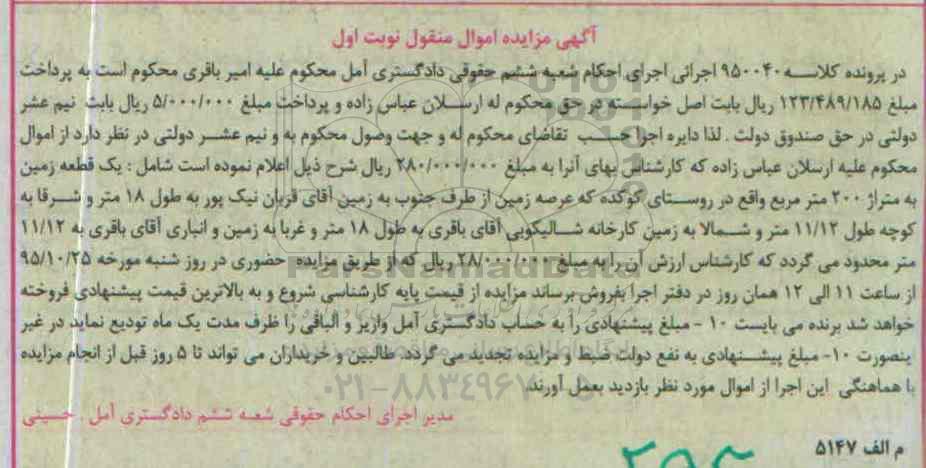 آگهی مزایده اموال منقول نوبت اول
در پرونده کلاسه ۹۵۰۰۴۰ اجرائی اجرای احکام شعبه ششم حقوقی دادگستری آمل محکوم علیه امیر باقری محکوم است به پرداخت
مبلغ ۱۲۳/۴۸۹/۱۸۵ ریال بابت اصل خواسته در حق محکوم له ارسلان عباس زاده و پرداخت مبلغ ۵/۰۰۰/۰۰۰ ریال بابت نیم عشر
دولتی در حق صندوق دولت . لذا دایره اجرا حسب تقاضای محکوم له و جهت وصول محکوم به و نیم عشر دولتی در نظر دارد از اموال
محکوم علیه ارسلان عباس زاده که کارشناس بهای آنرا به مبلغ ۲۸۰/۰۰۰/۰۰۰ ریال شرح ذیل اعلام نموده است شامل : یک قطعه زمین
به متراژ ۲۰۰ متر مربع واقع در روستای کوکده که عرصه زمین از طرف جنوب به زمین آقای قربان نیک پور به طول ۱۸ متر و شرقا به
کوچه طول ۱۱/۱۲ متر و شمالا به زمین کارخانه شالیکوبی آقای باقری به طول ۱۸ متر و غربا به زمین و انباری آقای باقری به ۱۱/۱۲
متر محدود می گردد که کارشناس ارزش آن را به مبلغ ۲۸/۰۰۰/۰۰۰ ریال که از طریق مزایده حضوری در روز شنبه مورخه ۹۵/۱۰/۲۵
از ساعت ۱۱ الی ۱۲ همان روز در دفتر اجرا بفروش برساند مزایده از قیمت پایه کارشناسی شروع و به بالاترین قیمت پیشنهادی فروخته
خواهد شد برنده می بایست ۱۰ - مبلغ پیشنهادی را به حساب دادگستری آمل واریز و الباقی را ظرف مدت یک ماه تودیع نماید در غیر
اینصورت ۱۰- مبلغ پیشنهادی به نفع دولت ضبط و مزایده تجدید می گردد طالبین و خریداران می تواند تا ۵ روز قبل از انجام مزایده
با هماهنگی این اجرا از اموال مورد نظر بازدید بعمل آورند
مدیر اجرای احکام حقوقی شعبه ششم دادگستری آمل . حسینی
م الف ۵۱۴۷
ParsNamadData
۰۲۱-۸۸۳۴۹۶۷۰-۵